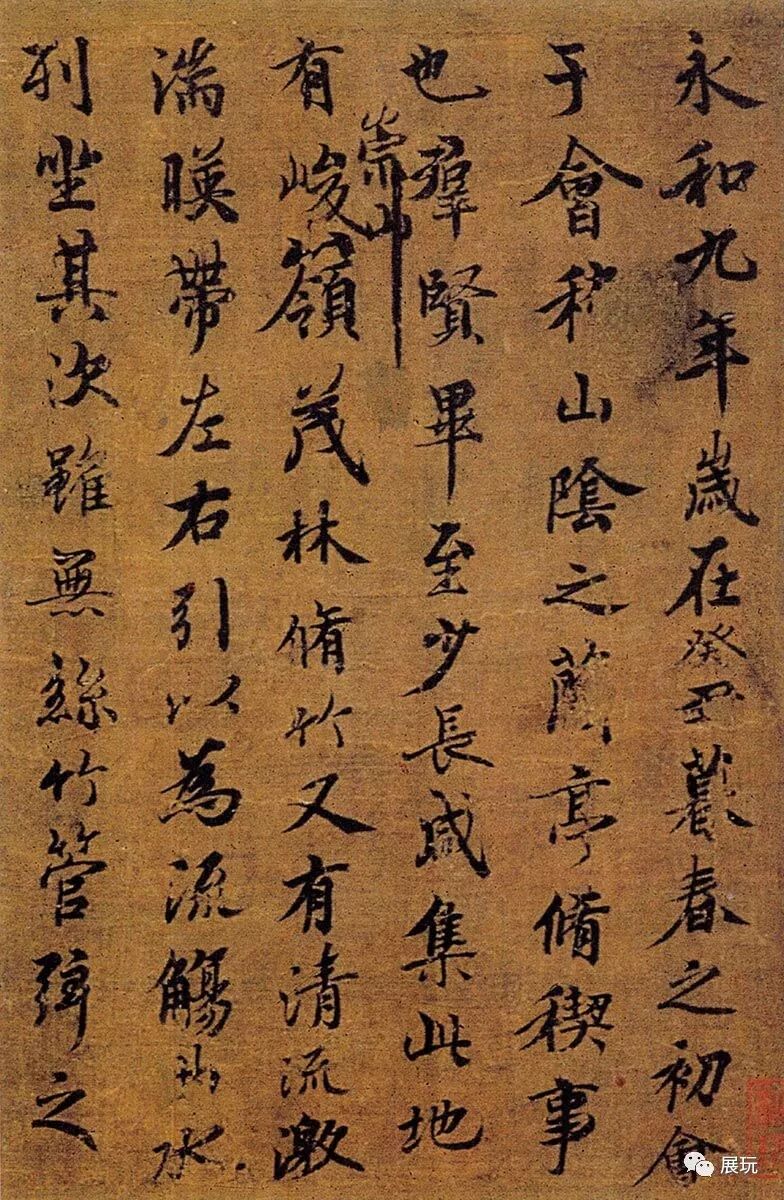 永和九年歲在癸丑暮春之初會
于會稽山陰之蘭亭脩稧事
也羣賢畢至少長咸集此地
有崇山峻嶺茂林脩竹又有清流激
湍暎帶左右引以為流觴曲水
列坐其次雖無絲竹管弦之
展玩